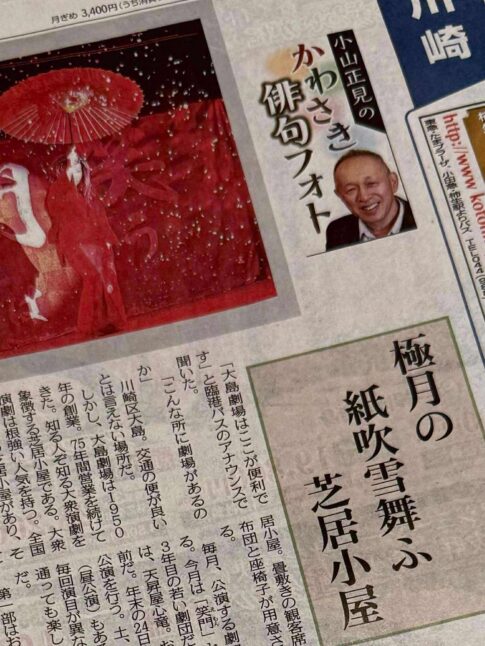 月ぎめ 3,400円(うち消費
川崎
小山正見の
かわさき
俳句フォト
http://www.koto
極月の
紙吹雪舞ふ
芝居小屋
「大島劇場はここが便利で
す」と臨港バスのアナウンスで
聞いた。
「こんな所に劇場があるの
か」
川崎区大島。交通の便が良い
とは言えない場所だ。
しかし、大島劇場は1950
年の創業。75年間営業を続けて
きた。知る人ぞ知る大衆演劇を
象徴する芝居小屋である。大衆
演劇は根強い人気を持つ。全国
居小屋があり、そ
居小屋。畳敷きの観客席
布団と座椅子が用意さ
る。
毎月、公演する劇
る。今月は「笑門」と
3年目の若い劇団だ
は、天昇屋心竜。お
前だ。年末の24日
公演を行う。土、
(昼公演)もある
毎回演目が異な
通っても楽し
だ。
第一部はお